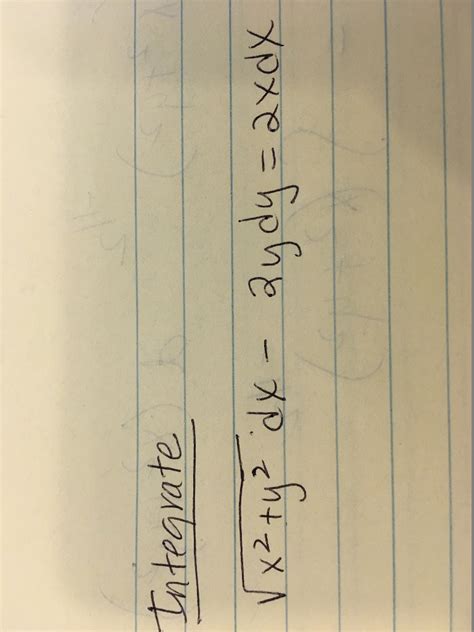 Integrate
√x²+y² dx - 2ydy = 2xdx